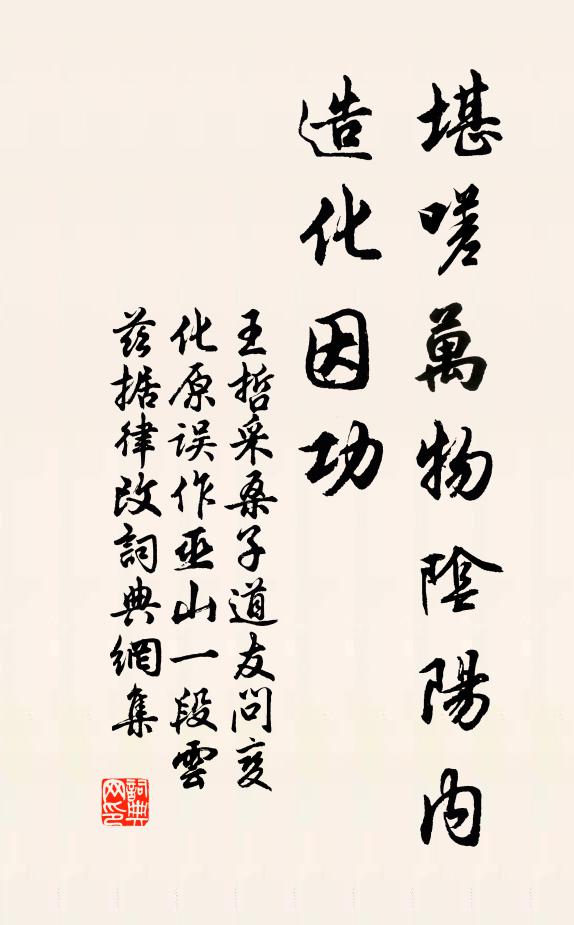 堪嗟萬物陰陽内
造化因功
王哲采桑子道友問変
化原误作巫山一段雲
兹据律改詞典網集
詞典
网印